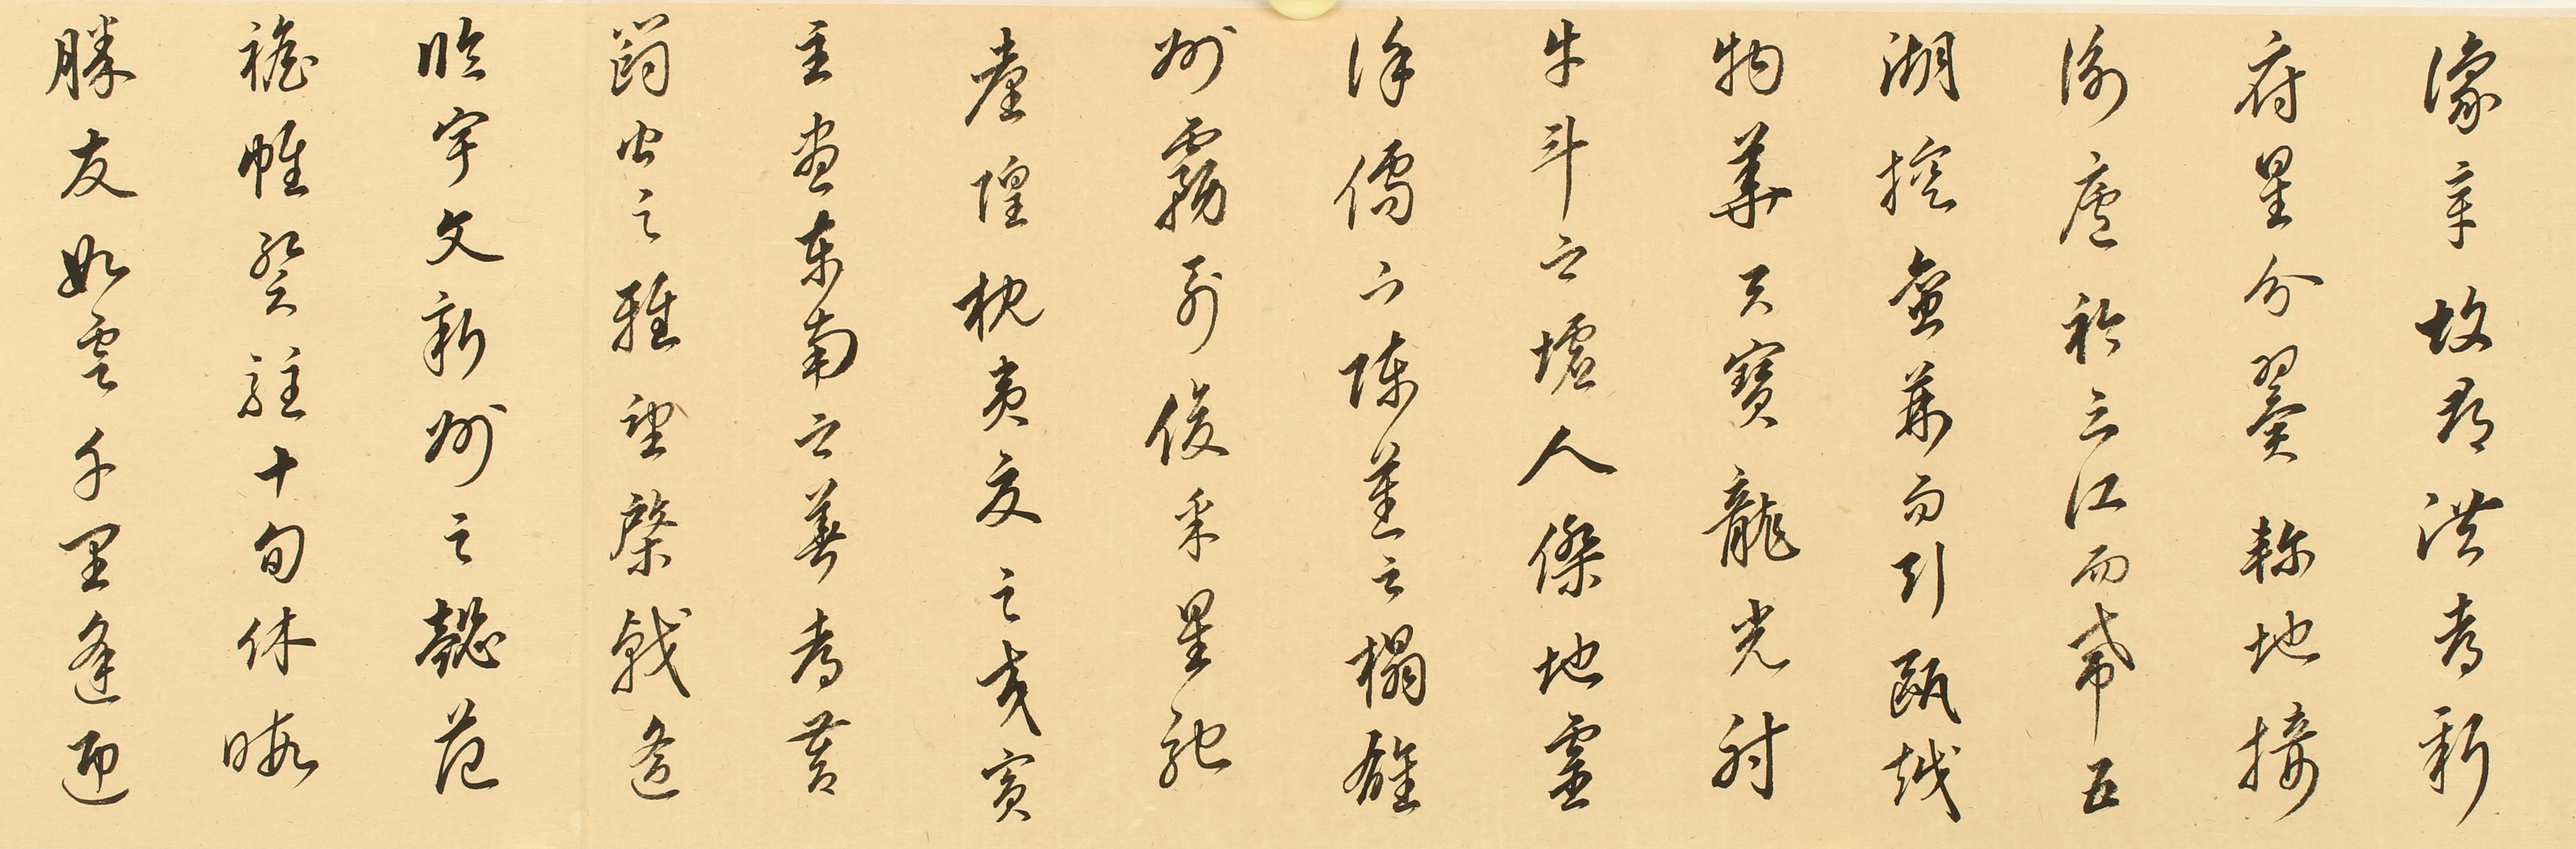 豫章故郡洪都新
府星分翼軫地接
衡廬衿三江而帶五
湖控蠻荊而引甌越
物華天寶龍光射
牛斗之墟人傑地靈
徐孺下陳蕃之榻雄
州霧列俊采星馳
臺隍枕夷夏之交賓
主盡東南之美都督
閻公之雅望棨戟遙
臨宇文新州之懿范
襜帷暫駐十旬休暇
勝友如雲千里逢迎